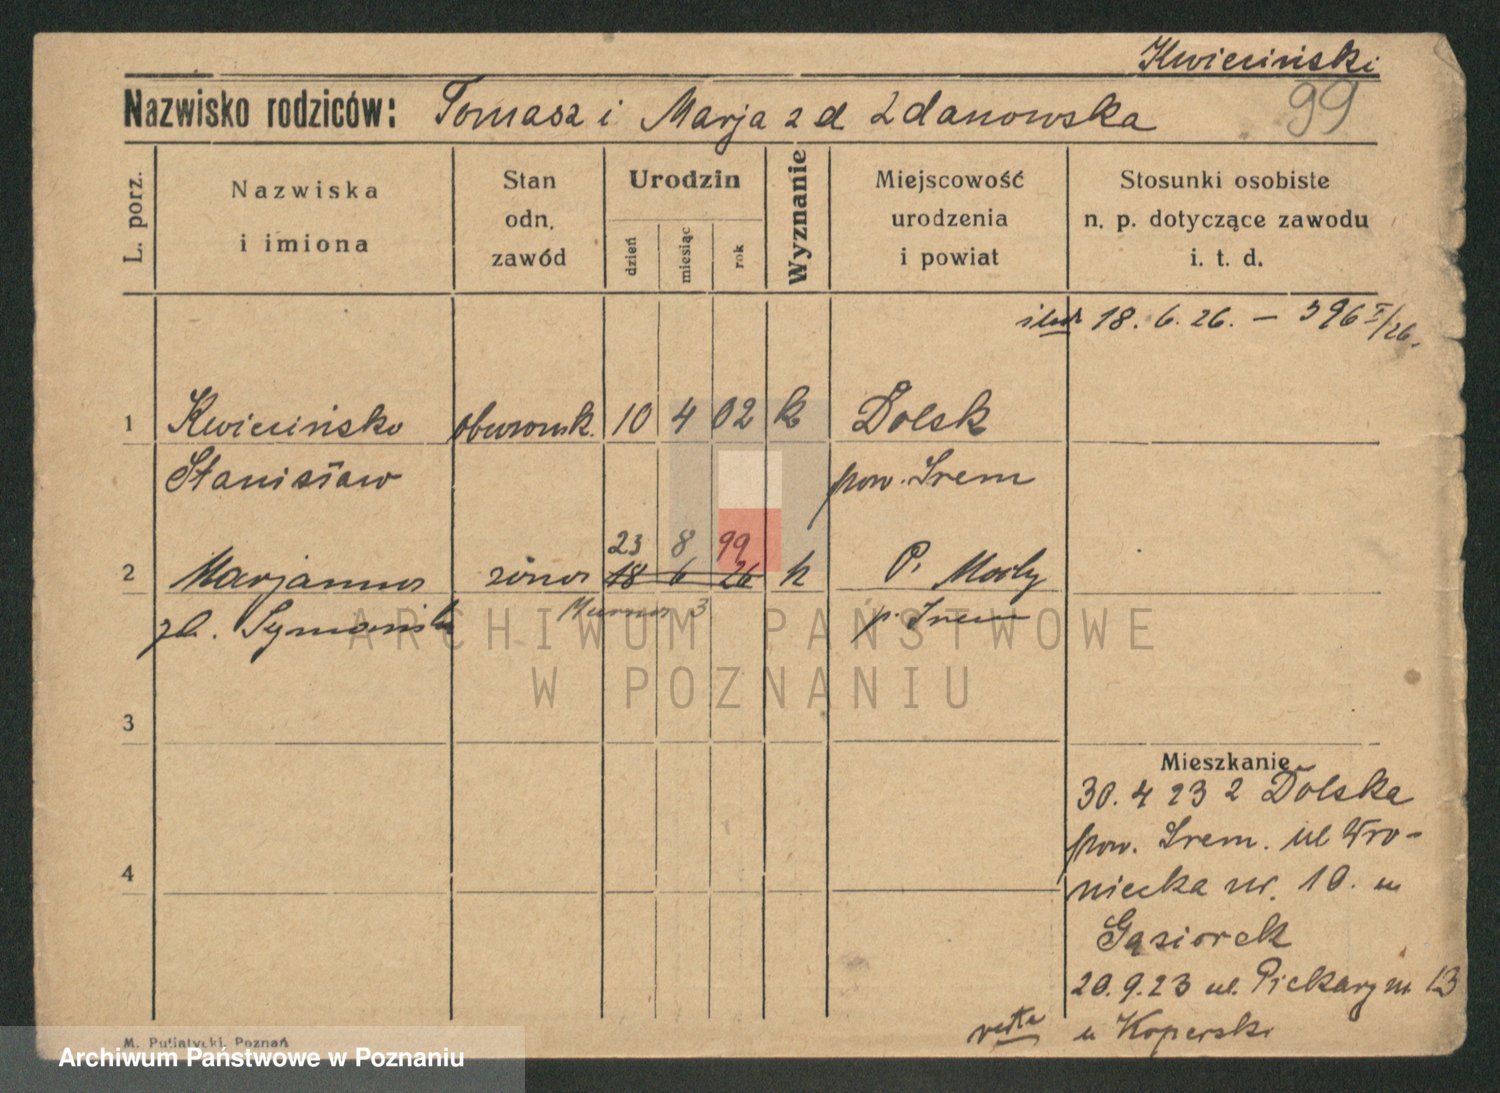 Kwieciński
99
Nazwisko rodziców: Tomasz i Marja z d Zdanowska
L. porz.
Nazwiska
i imiona
Stan
odn.
zawód
Urodzin
dzień
miesiąc
rok
Wyznanie
Miejscowość
urodzenia
i powiat
Stosunki osobiste
n. p. dotyczące zawodu
i. t. d.
18. 6. 26. — 396 I/26.
1 Kwieciński 10 4 02 k Dolsk
Stanisław pow. Śrem
23 8 99
2 Marjanna żona 18 6 26 k P. Mochy
p. Śrem
3
3
Mieszkanie
30. 4 23 z Dolska
pow. Śrem. ul Wro-
niecka nr. 10. u
Gąsiorek
20. 9. 23 ul. Piekary nr 13
u Koperski
4
M. Putiatycki, Poznań
ARCHIWUM PAŃSTWOWE
W POZNANIU
Archiwum Państwowe w Poznaniu